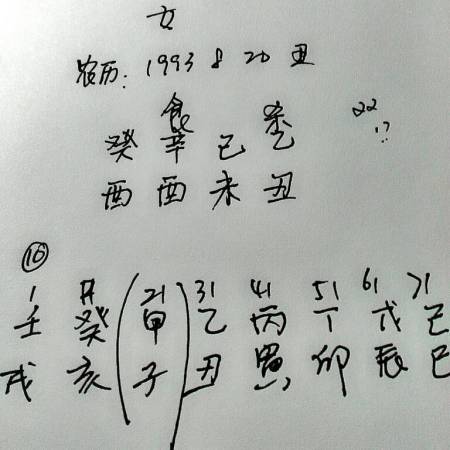 女
农历: 1993 8 20 丑
食 杀
癸 辛 己 乙 22
酉 酉 未 丑
1 11 (21) 31 41 51 61 71
壬 癸 (甲) 乙 丙 丁 戊 己
戌 亥 (子) 丑 寅 卯 辰 巳